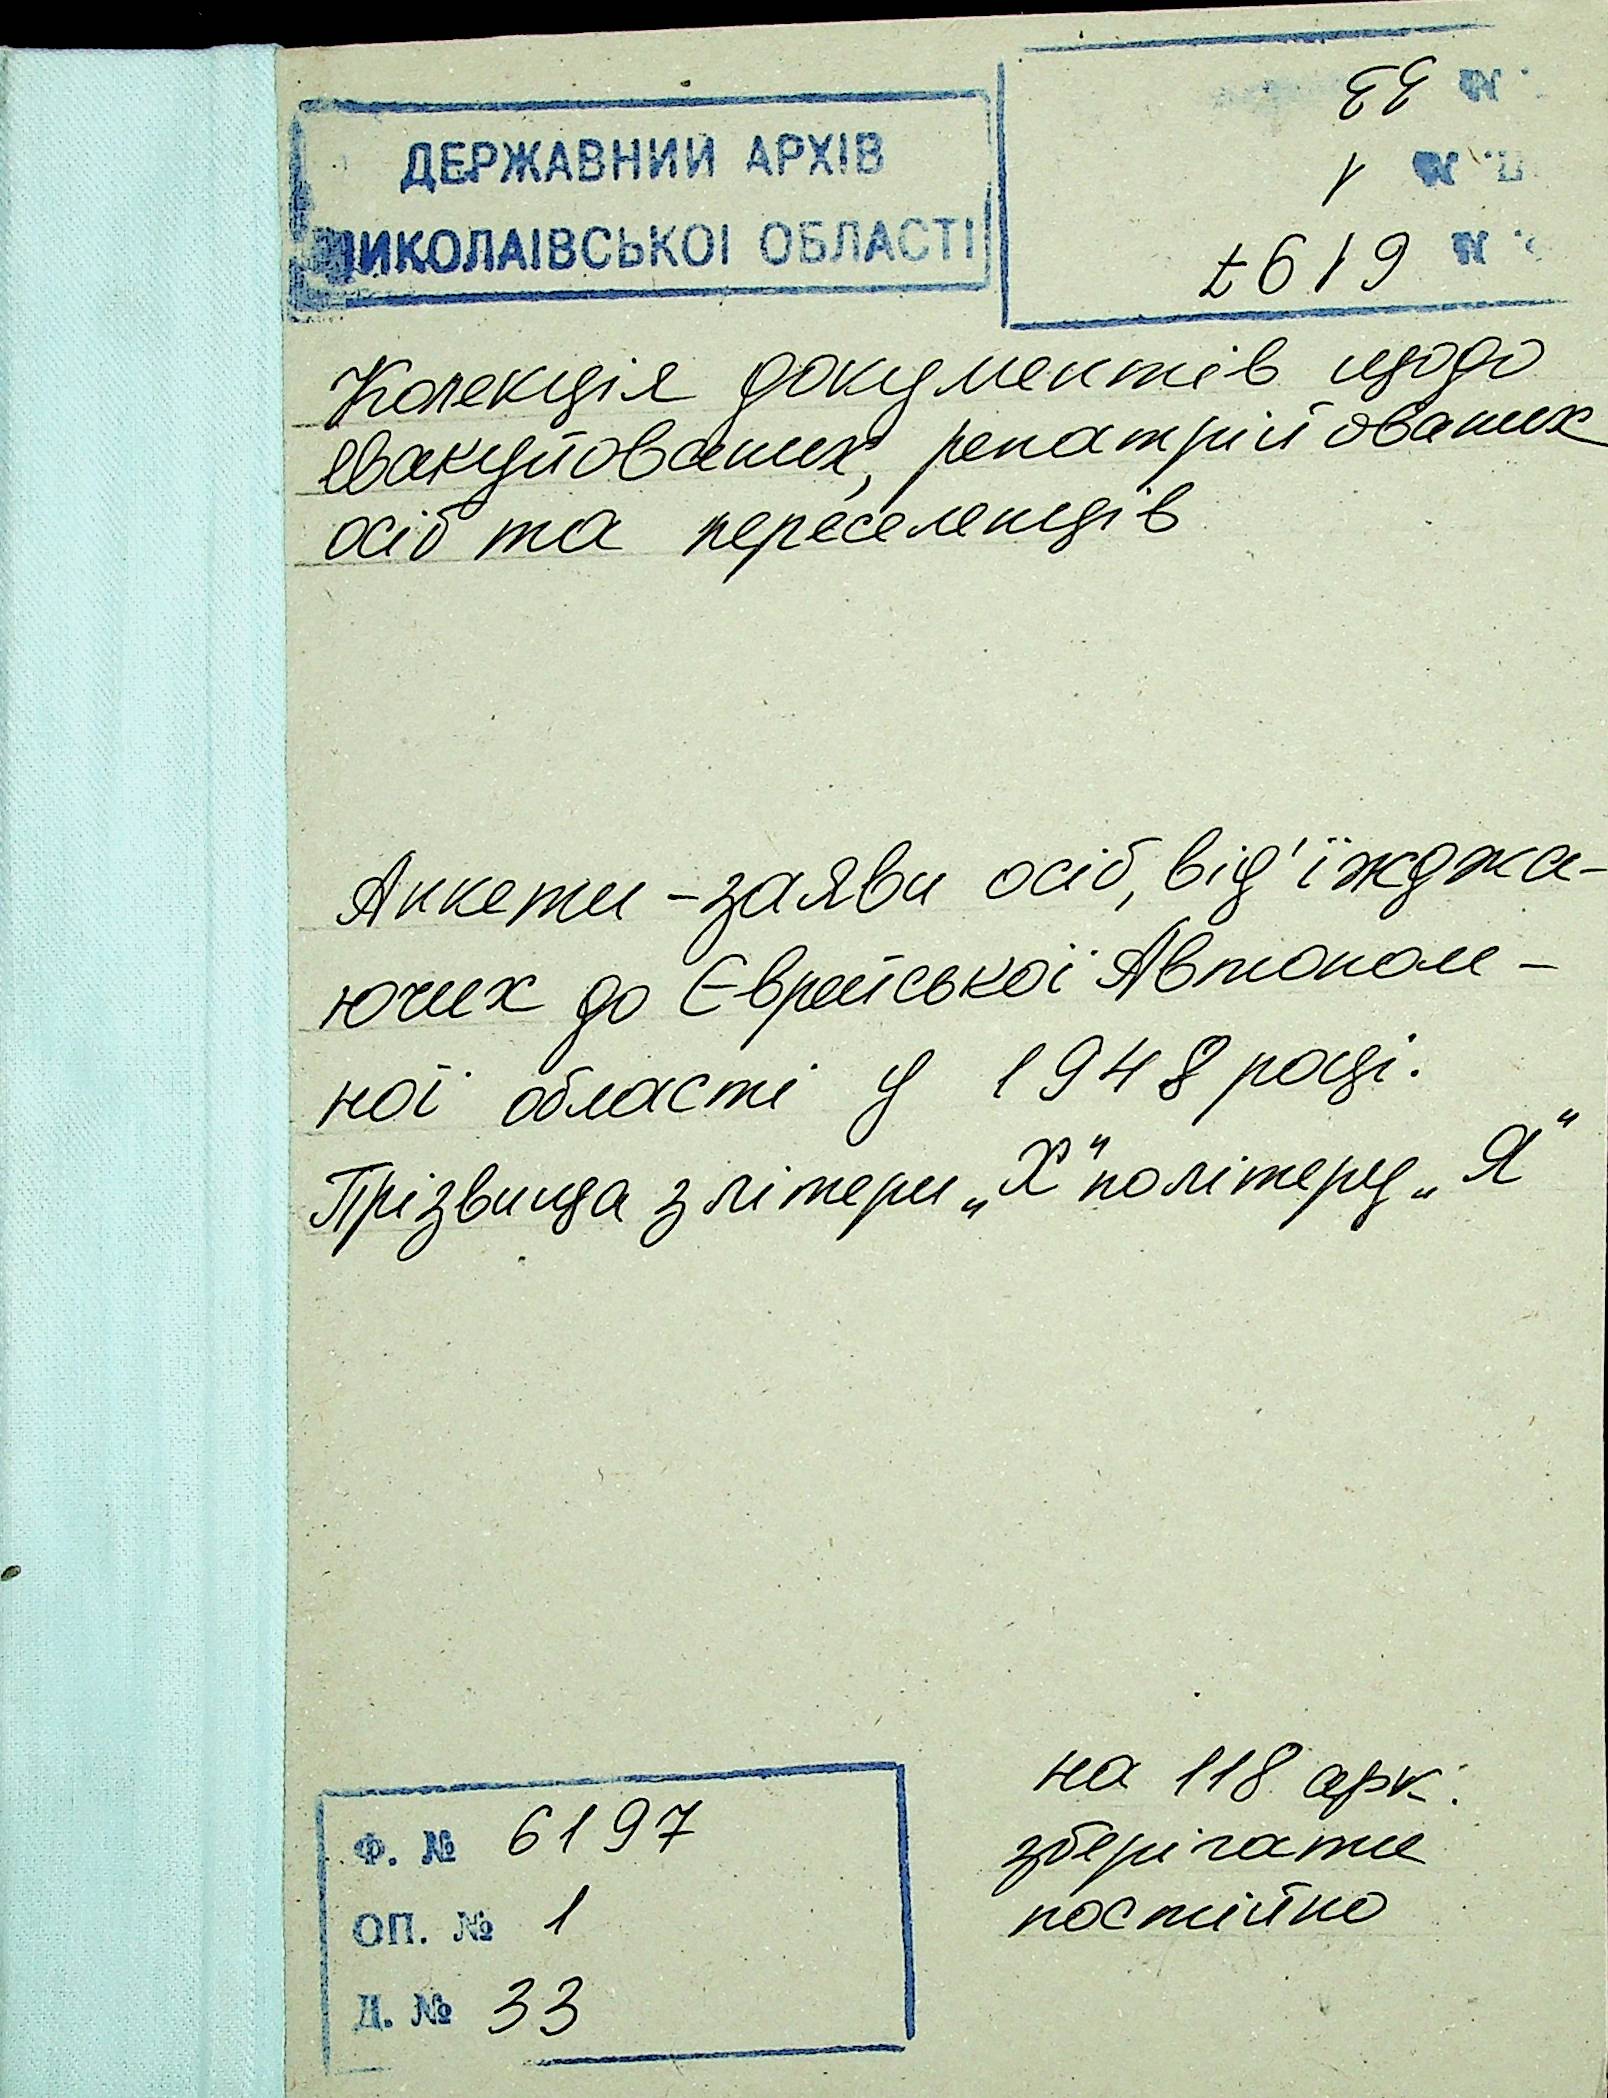 ДЕРЖАВНИЙ АРХІВ
МИКОЛАЇВСЬКОЇ ОБЛАСТІ
№ 33
№ 1
№ 6197
Колекція документів щодо
евакуйованих, репатрійованих
осіб та переселенців
Анкети-заяви осіб, від'їжджа-
ючих до Єврейської Автоном-
ної області у 1948 році.
Прізвища з літери „Х" по літеру „Я"
Ф. № 6197
ОП. № 1
Д. № 33
на 118 арк.
зберігати
постійно